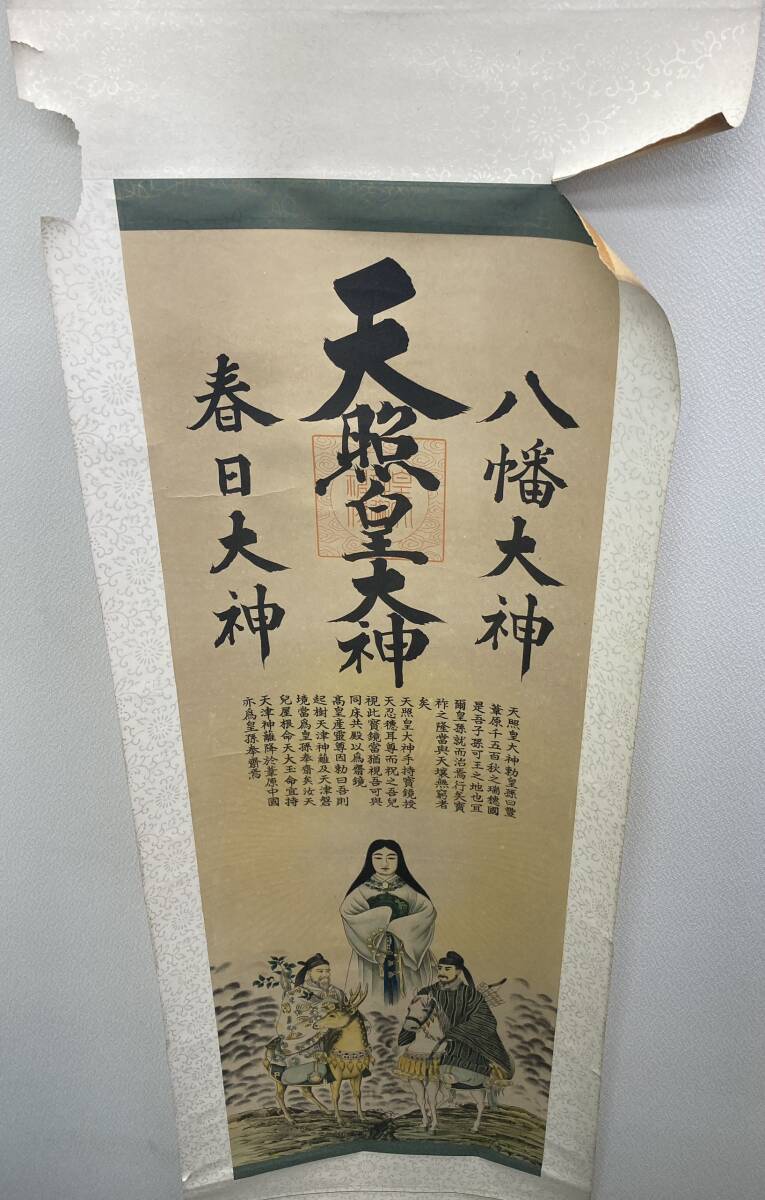 八幡大神
天照皇大神
春日大神
天照皇大神勅皇孫曰豐
葦原千五百秋之瑞穗國
是吾子孫可王之地也宜
爾皇孫就而治焉行矣寶
祚之隆當與天壤無窮者
矣
天照皇大神手持寶鏡授
天忍穗耳尊而祝之吾兒
視此寶鏡當猶視吾可與
同床共殿以爲齋鏡
高皇産靈尊因勅曰吾則
起樹天津神籬及天津磐
境當爲皇孫奉齋矣汝天
兒屋根命天太玉命宜持
天津神籬降於葦原中國
亦爲皇孫奉齋焉